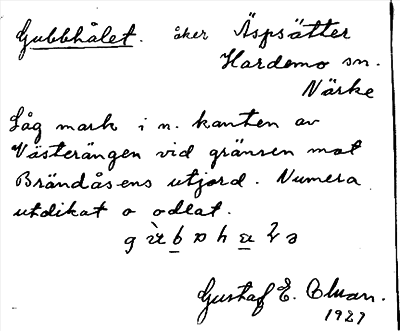 Gubbhålet. åker Äspsätter
Hardemo sn.
Närke
Låg mark i n. kanten av
Västerängen vid gränsen mot
Brändåsens utjord. Numera
utdikat o odlat.
Gustaf E.
1927